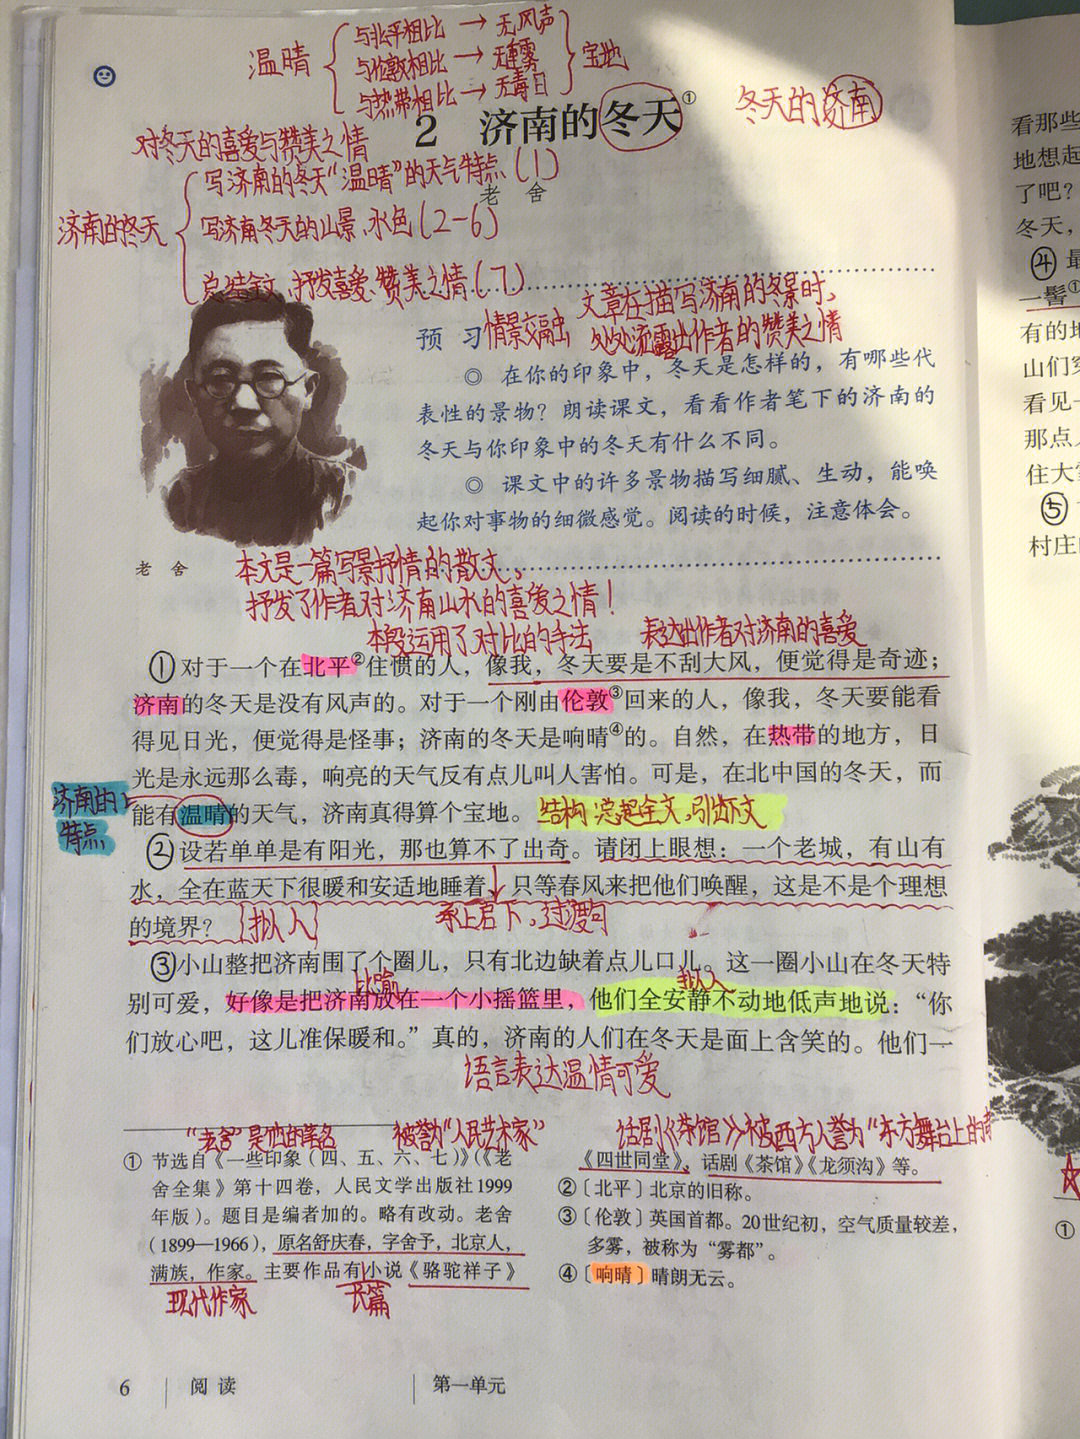 温晴
与北平相比→无风声
与伦敦相比→无重雾
与热带相比→无毒日
宝地
2 济南的冬天①
冬天的济南
对冬天的喜爱与赞美之情
老 舍
济南的冬天
写济南的冬天“温晴”的天气特点(1)
写济南冬天的山景、水色(2-6)
总结全文,抒发喜爱、赞美之情(7)
文章在描写济南的冬景时,
预 习
情景交融
处处流露出作者的赞美之情
◎ 在你的印象中,冬天是怎样的,有哪些代
表性的景物?朗读课文,看看作者笔下的济南的
冬天与你印象中的冬天有什么不同。
◎ 课文中的许多景物描写细腻、生动,能唤
起你对事物的细微感觉。阅读的时候,注意体会。
老 舍
本文是一篇写景抒情的散文,
抒发了作者对济南山水的喜爱之情!
本段运用了对比的手法 表达出作者对济南的喜爱
①对于一个在北平②住惯的人,像我,冬天要是不刮大风,便觉得是奇迹;
济南的冬天是没有风声的。对于一个刚由伦敦③回来的人,像我,冬天要能看
得见日光,便觉得是怪事;济南的冬天是响晴④的。自然,在热带的地方,日
光是永远那么毒,响亮的天气反有点儿叫人害怕。可是,在北中国的冬天,而
能有温晴的天气,济南真得算个宝地。
济南的
特点
结构:总起全文,引出下文
②设若单单是有阳光,那也算不了出奇。请闭上眼想:一个老城,有山有
水,全在蓝天下很暖和安适地睡着,只等春风来把他们唤醒,这是不是个理想
的境界?
[拟人]
承上启下,过渡句
③小山整把济南围了个圈儿,只有北边缺着点儿口儿。这一圈小山在冬天特
比喻
拟人
别可爱,好像是把济南放在一个小摇篮里,他们全安静不动地低声地说:“你
们放心吧,这儿准保暖和。”真的,济南的人们在冬天是面上含笑的。他们一
语言表达温情可爱
“老舍”是他的笔名 被誉为“人民艺术家”
话剧《茶馆》被西方人誉为“东方舞台上的
① 节选自《一些印象(四、五、六、七)》(《老
舍全集》第十四卷,人民文学出版社1999
年版)。题目是编者加的。略有改动。老舍
(1899—1966),原名舒庆春,字舍予,北京人,
满族,作家。主要作品有小说《骆驼祥子》
现代作家
长篇
《四世同堂》,话剧《茶馆》《龙须沟》等。
②〔北平〕北京的旧称。
③〔伦敦〕英国首都。20世纪初,空气质量较差,
多雾,被称为“雾都”。
④〔响晴〕晴朗无云。
6 阅 读 第一单元
看那些
地想起
了吧?
冬天,
④ 最
一髻①
有的地
山们穿
看见一
那点
住大
⑤
村庄
①